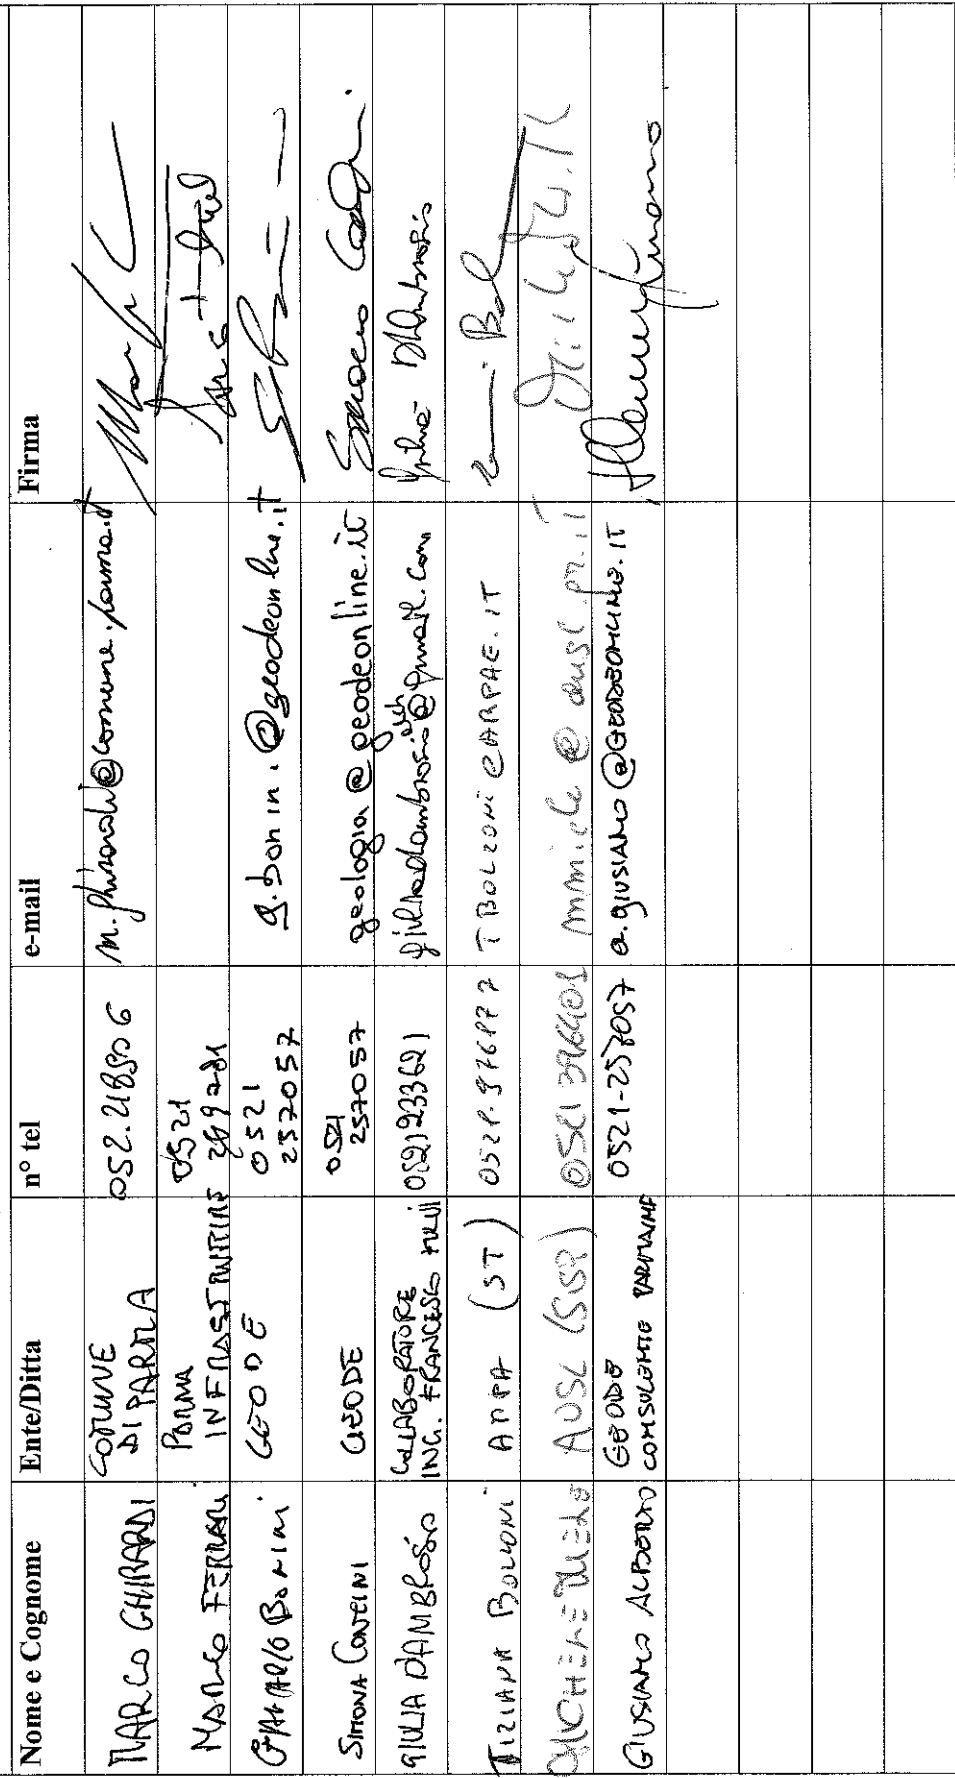 Nome e Cognome Ente/Ditta n° tel e-mail Firma
MARCO GHIRARDI COMUNE DI PARMA 052.218506 m.ghirardi@comune.parma.it
MARCO FERRARI PARMA INFRASTRUTTURE 0521
GIANMARIO BONINI GEODE 0521 257057 g.bonini.@geodeonline.it
SIMONA CONTINI GEODE 0521 257057 geologia@geodeonline.it Simona Contini
GIULIA DAMBROSIO COLLABORATORE ING. FRANCESCO 0521233621 giuliadambrosio.arch@gmail.com Giulia D'Ambrosio
TIZIANA BOLZONI ARPA (ST) 0521.976177 TBOLZONI@ARPAE.IT
MICHELE AUSL (SISP) 0521 396401 @ausl.pr.it
GIUSIANO ALBERTO GEODE CONSULENTE 0521-257057 a.giusiano@GEODEONLINE.IT